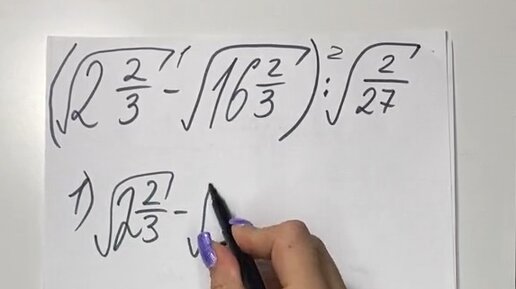 (√2 2/3 - √16 2/3) : √2/27
1) √2 2/3 - √